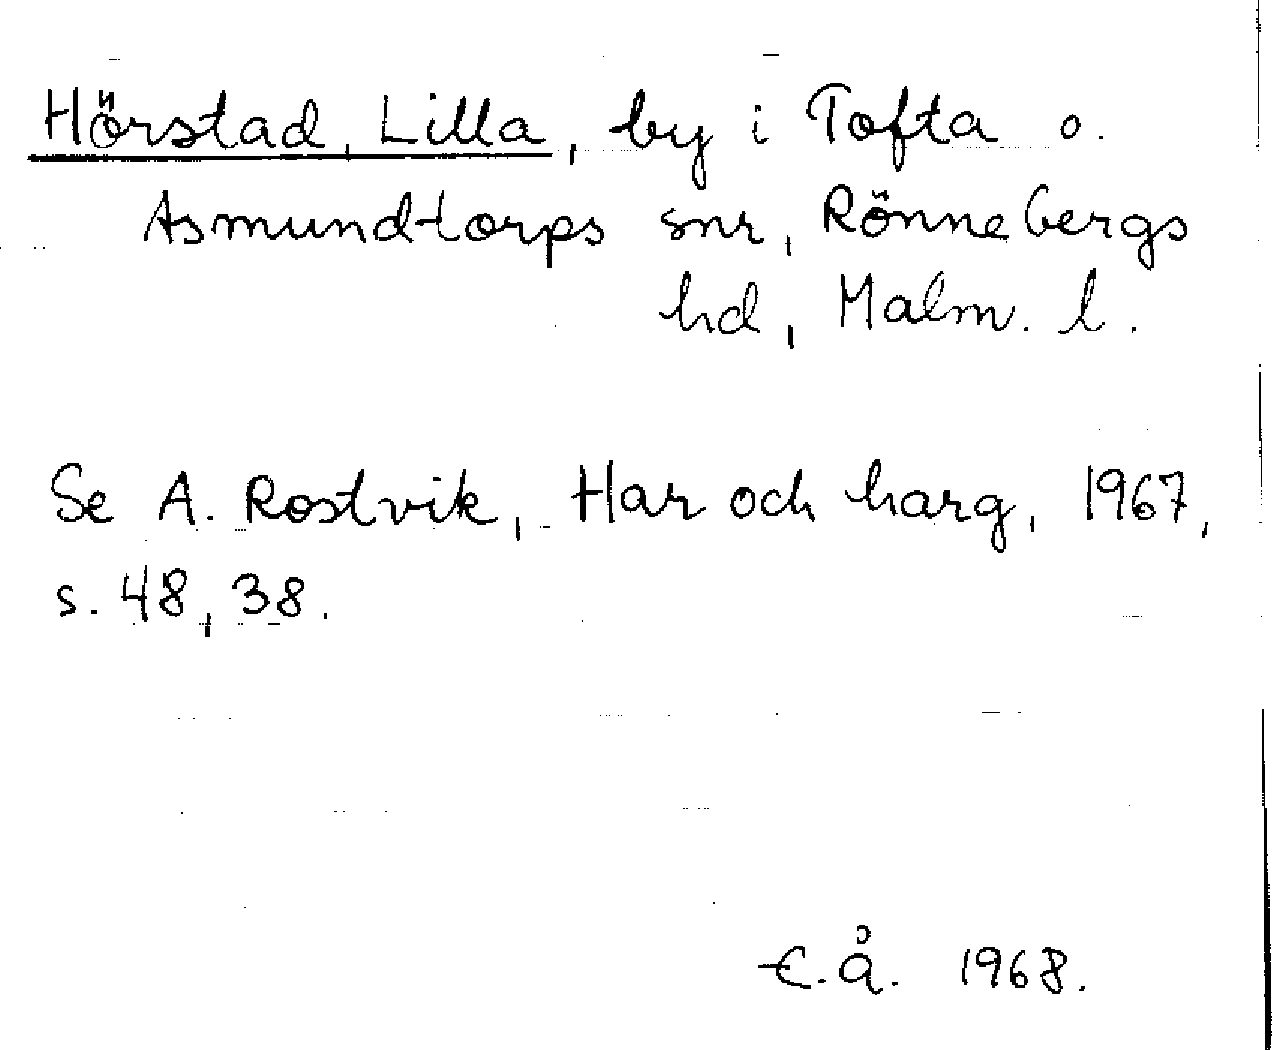 Hörstad, Lilla, by i Tofta o.
Asmundtorps snr, Rönnebergs
hd, Malm. l.
Se A. Rostvik, Har och harg, 1967,
s. 48, 38.
E.Å. 1968.